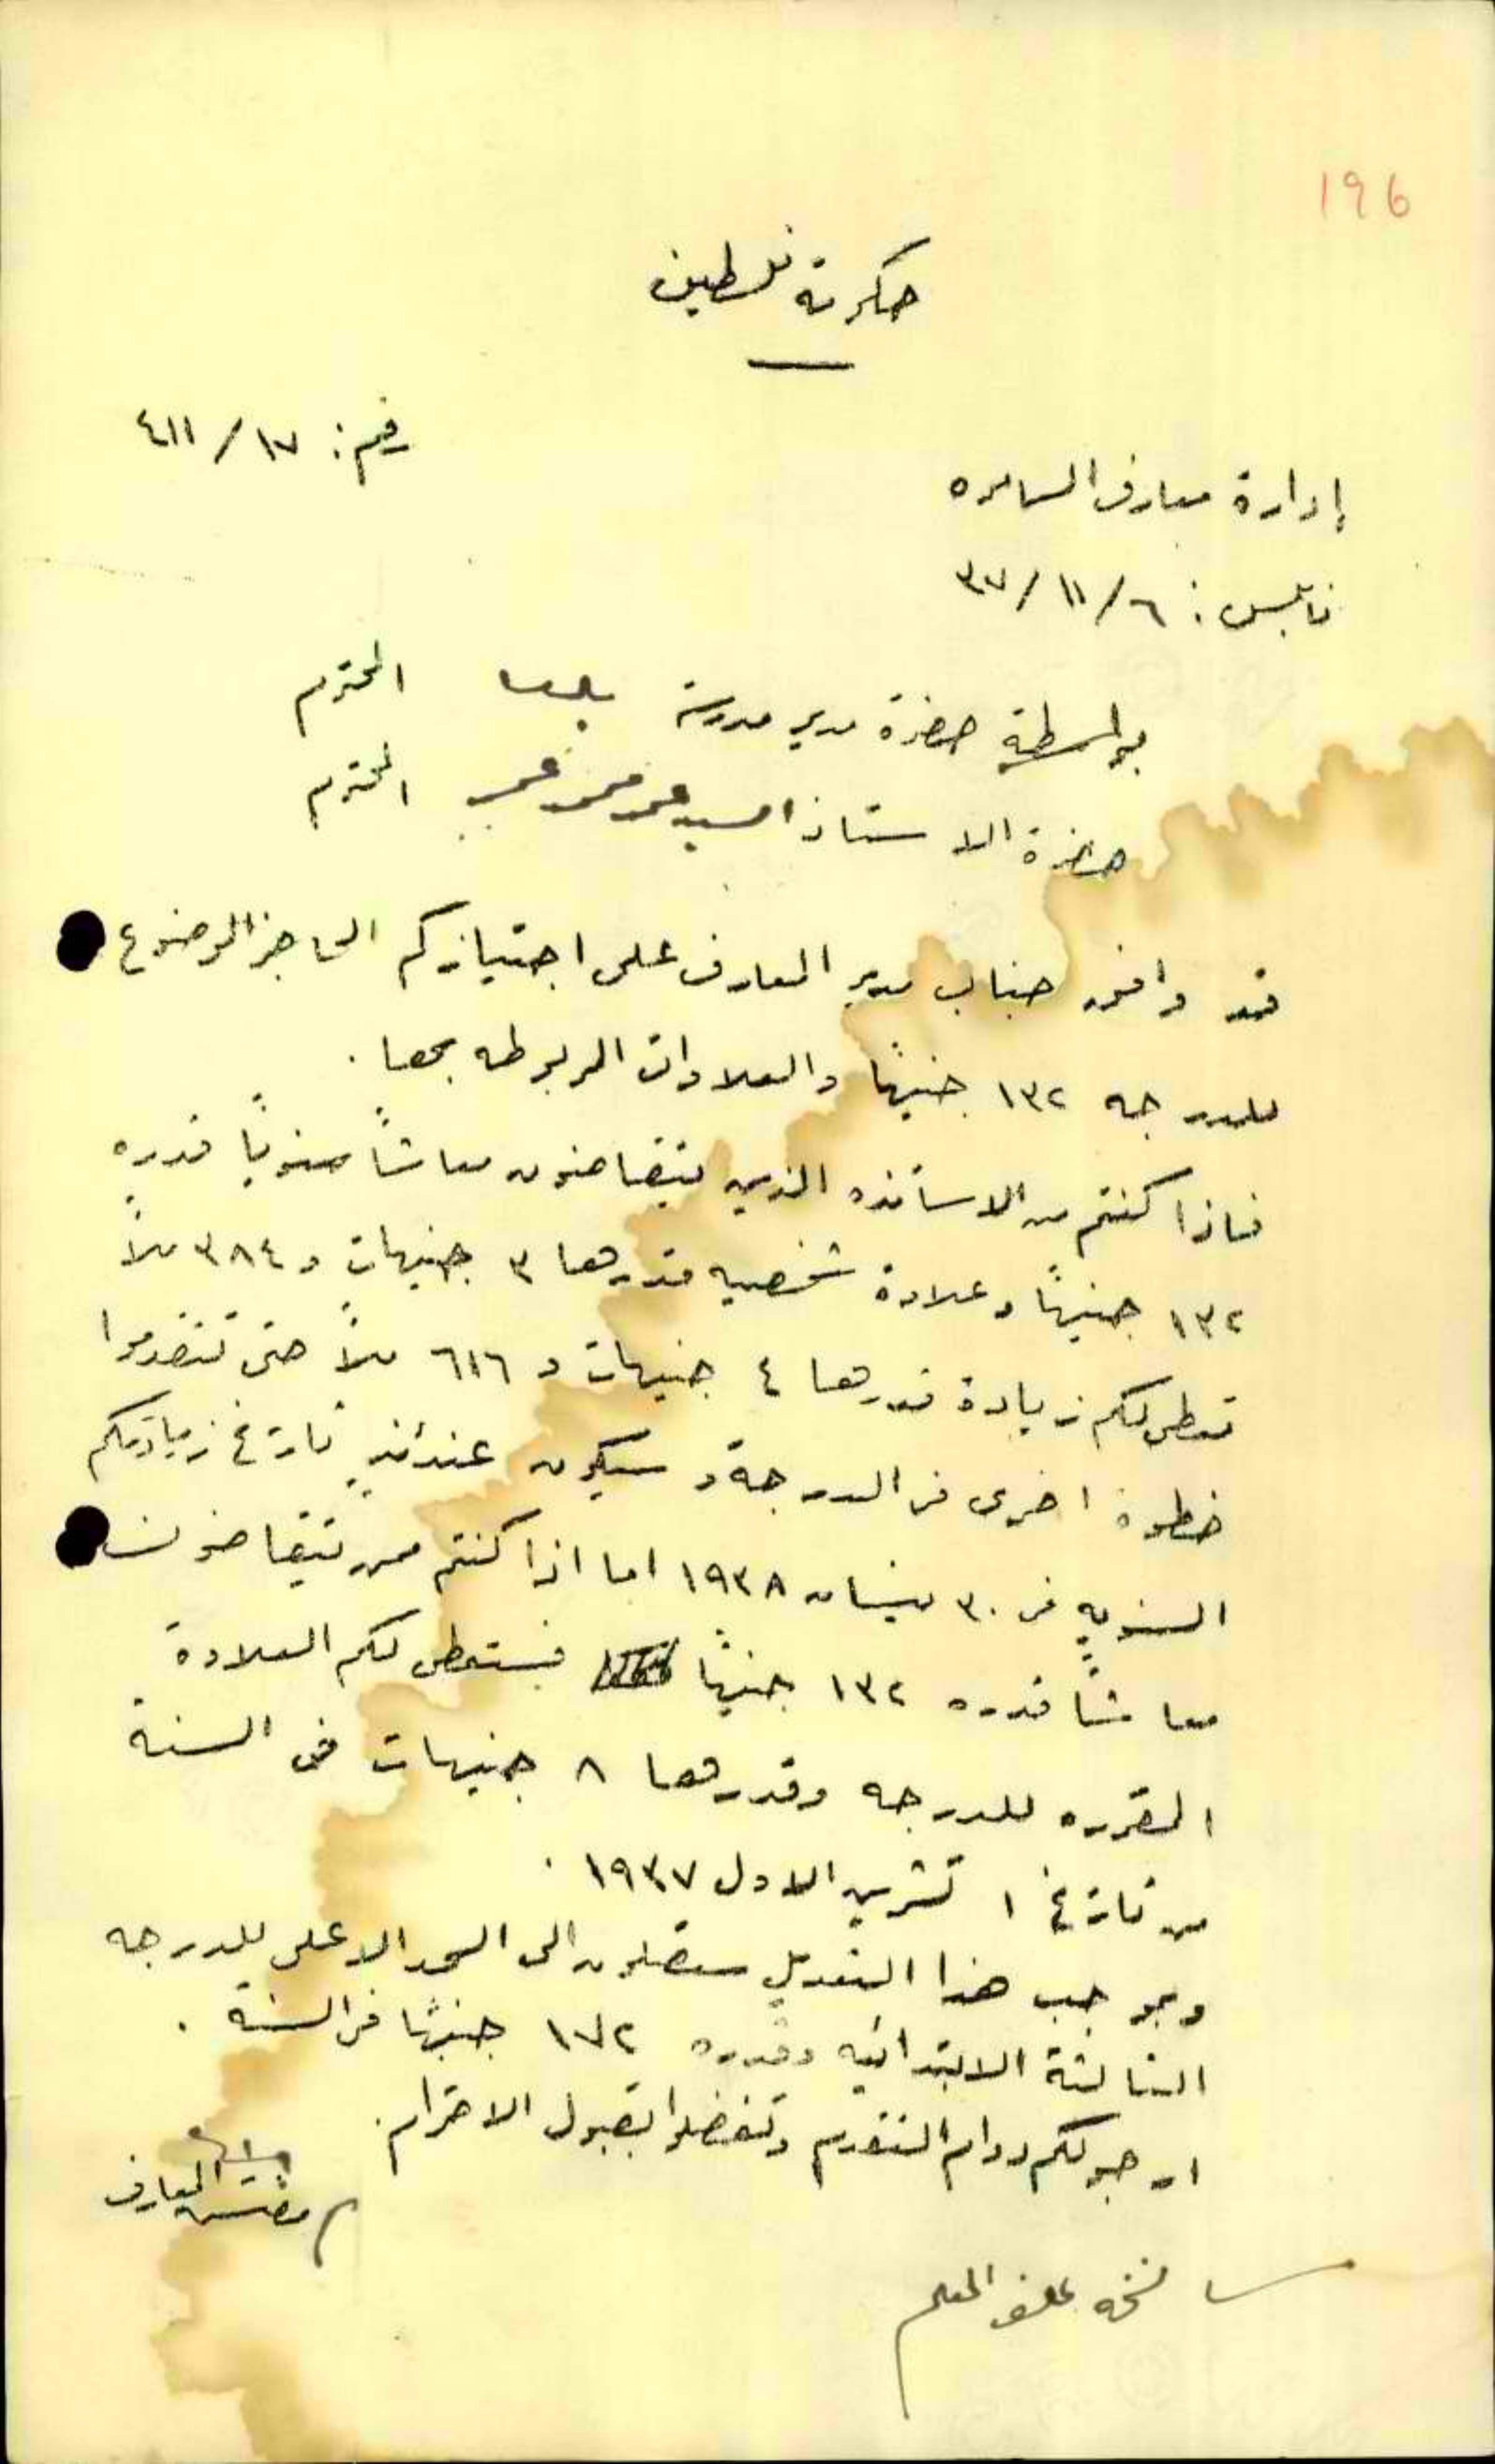 196
حكومة فلسطين
رقم: ١٧/٤١١
إدارة معارف السامره
نابلس: ٦/١١/٣٧
بواسطة حضرة مدير مدرسة بلعا المحترم
حضرة الاستاذ السيد محمد عمر المحترم
قد وافق جناب مدير المعارف على اجتيازكم الحاجز الموضوع
للدرجه ١٣٢ جنيهًا والعلاوات المربوطه بها.
فاذا كنتم من الاساتذه الذين يتقاضون معاشاً سنوياً قدره
١٣٢ جنيهاً وعلاوة شخصيه قدرها ٣ جنيهات و ٣٨٤ ملاً
تعطى لكم زيادة قدرها ٤ جنيهات و ٦١٦ ملاً حتى تتقدموا
خطوة اخرى في الدرجة وسيكون عندئذٍ تاريخ زيادتكم
السنوية في ٣٠ نيسان ١٩٣٨ اما اذا كنتم ممن يتقاضون
معاشاً قدره ١٣٢ جنيهاً فستعطى لكم العلاوة
المقرره للدرجه وقدرها ٨ جنيهات في السنة
من تاريخ ١ تشرين الاول ١٩٣٧.
وبموجب هذا التعديل ستصلون الى الحد الاعلى للدرجه
الثالثة الابتدائيه وقدره ١٧٢ جنيهًا في السنة.
ارجو لكم دوام التقدم وتفضلوا بقبول الاحترام.
مفتش المعارف
نسخه لملف المعلم